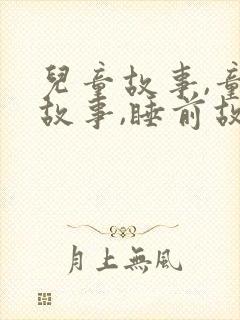 兒童故事,童
故事,睡前故
月上無風